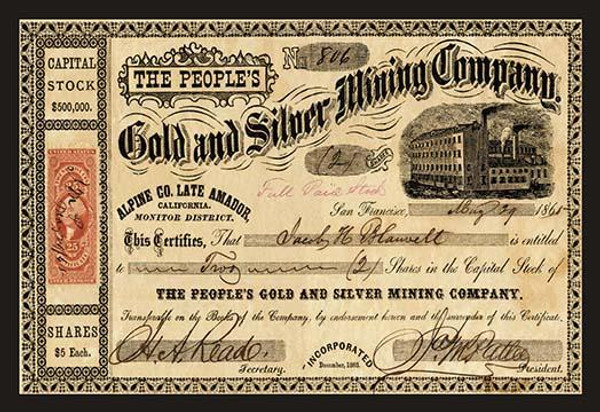 CAPITAL
STOCK
$500,000.
No. 806
THE PEOPLE'S
Gold and Silver Mining Company.
(2)
ALPINE CO. LATE AMADOR,
CALIFORNIA.
MONITOR DISTRICT.
Full Paid Stock
San Francisco, May 29 186
This Certifies, That Jacob H Blauvelt is entitled
to Two (2) Shares in the Capital Stock of
THE PEOPLE'S GOLD AND SILVER MINING COMPANY.
Transferable on the Books of the Company, by endorsement hereon and the surrender of this Certificate.
25
SHARES
$5 Each.
H. A. Reade.
Secretary.
INCORPORATED
December, 1863.
President.